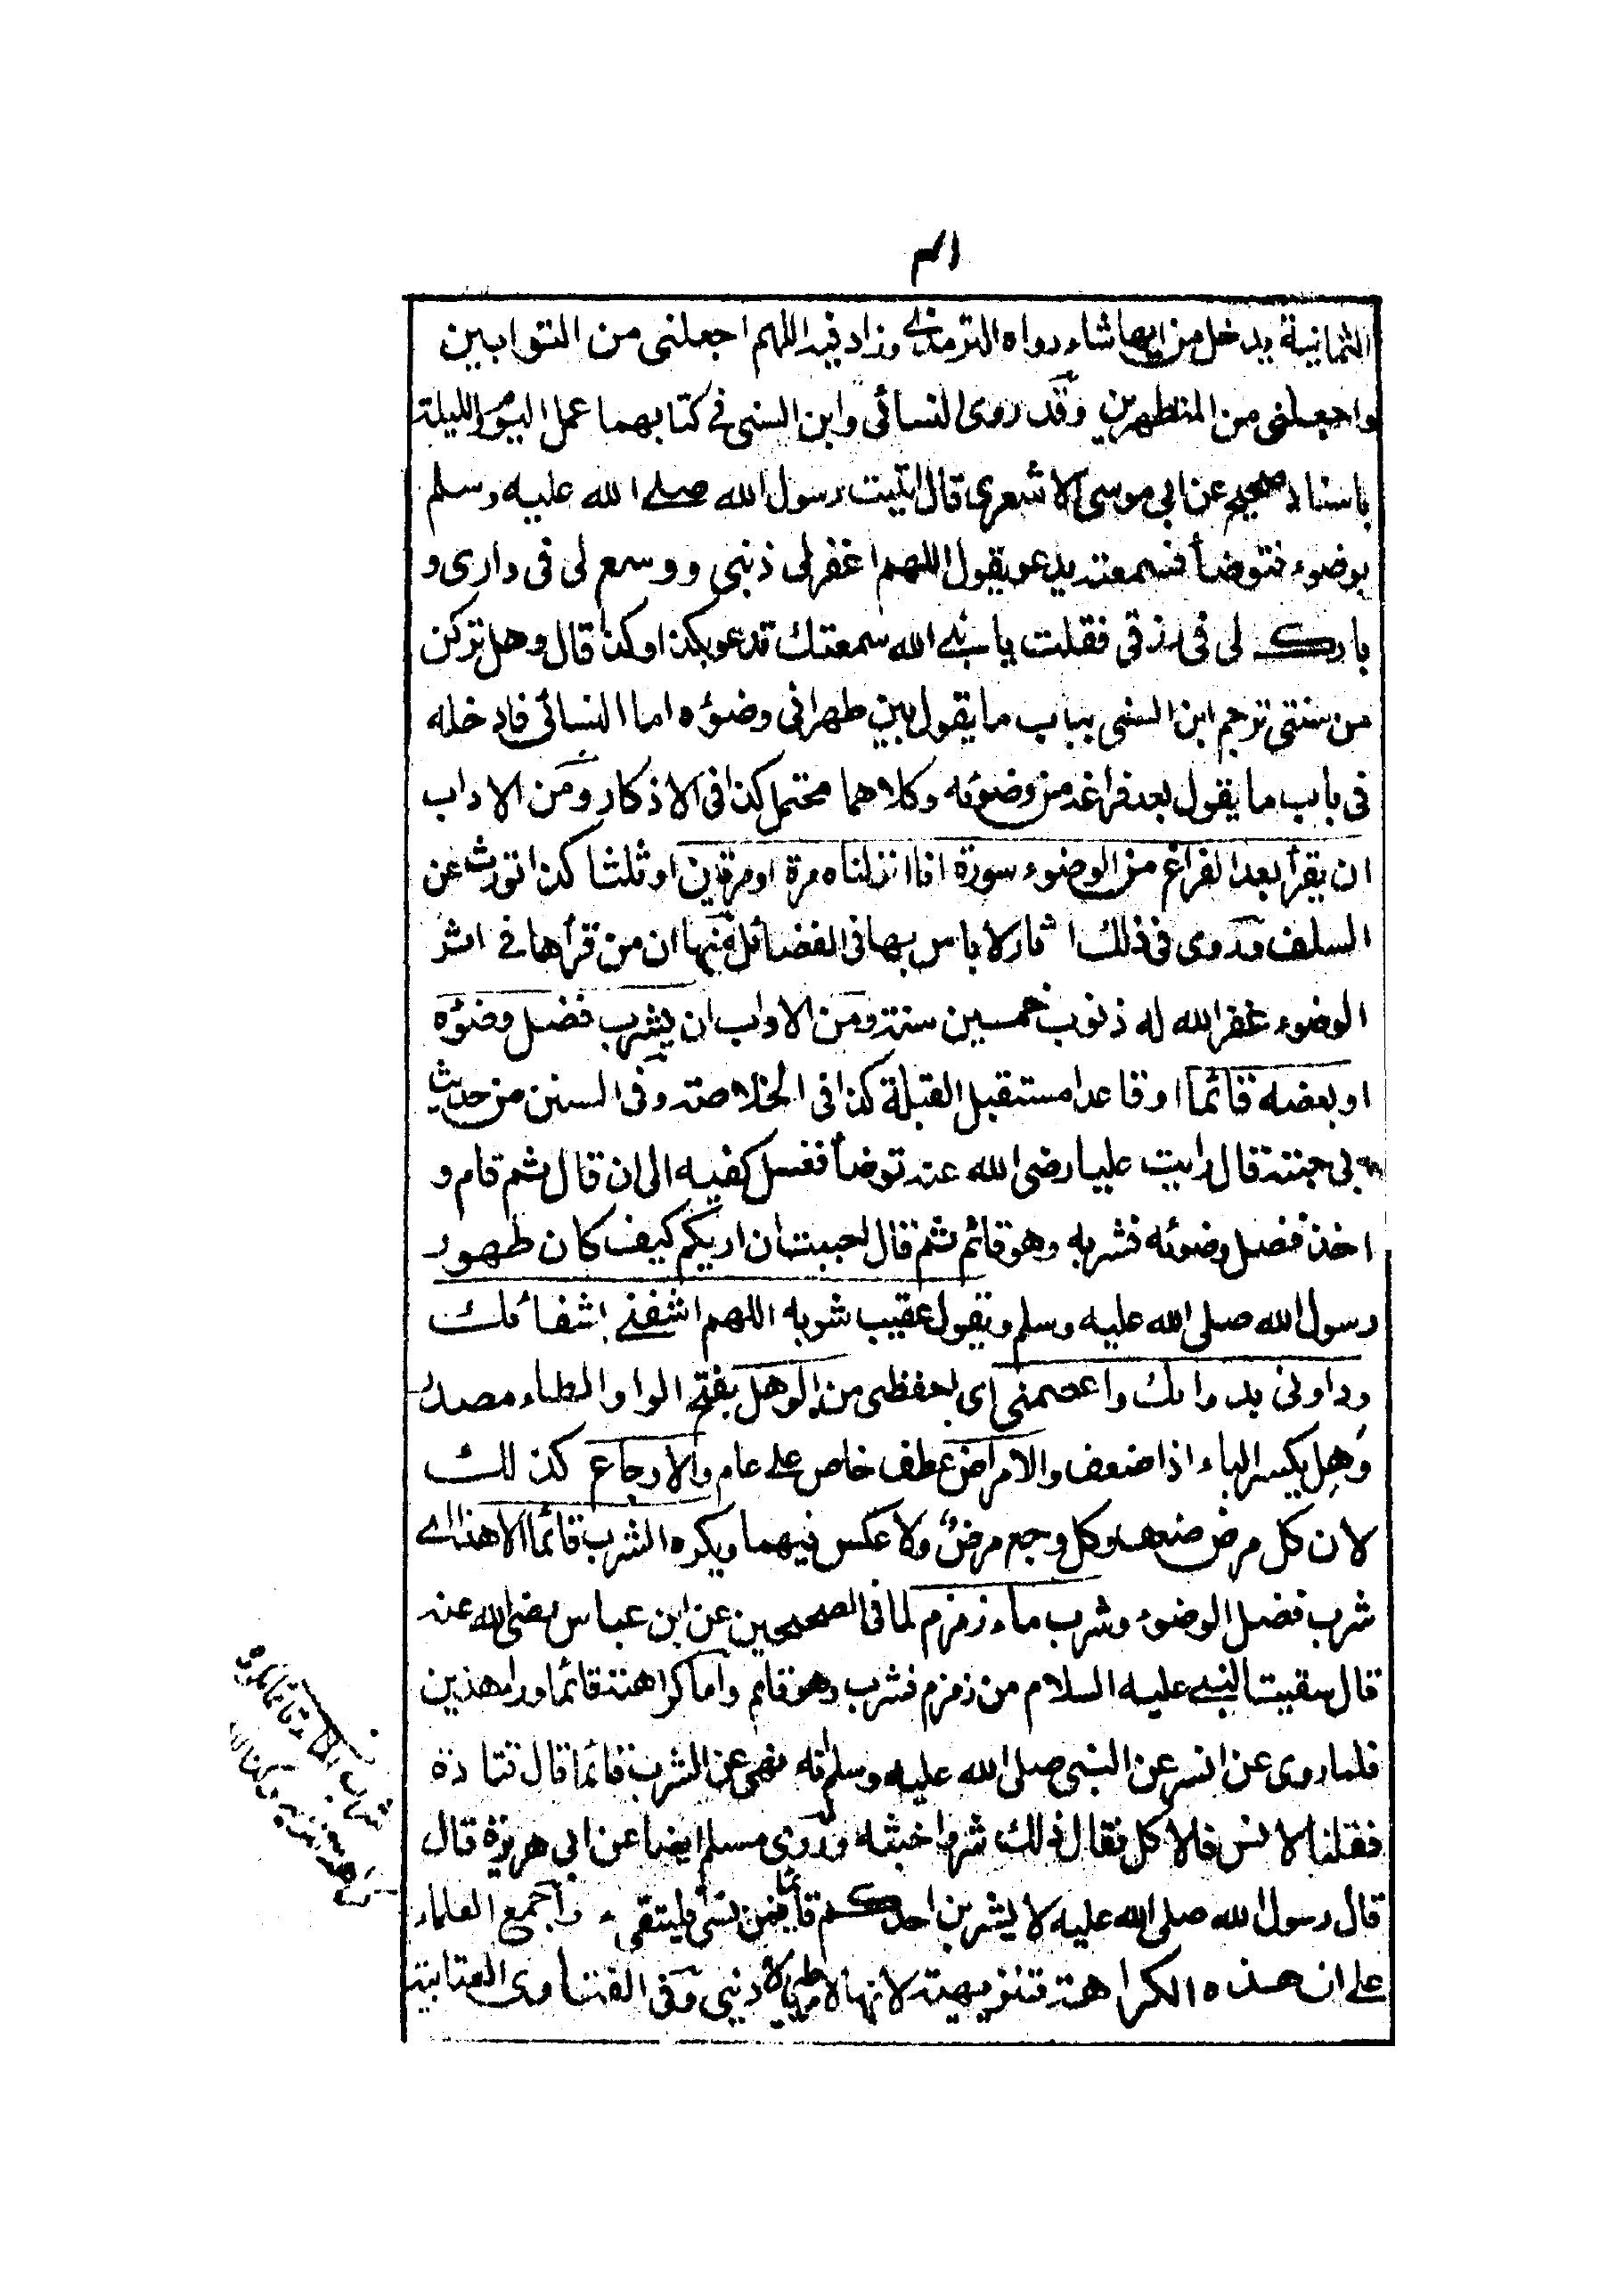 الثمانية يدخل من ايها شاء رواه الترمذى وزاد فيه اللهم اجعلنى من التوابين
واجعلنى من المتطهرين وقد روى النسائى وابن السنى فى كتابهما عمل اليوم والليلة
باسناد صحيح عن ابى موسى الاشعرى قال اتيت رسول الله صلى الله عليه وسلم
بوضوء فتوضأ فسمعته يدعو يقول اللهم اغفر لى ذنبى ووسع لى فى دارى و
بارك لى فى رزقى فقلت يا نبى الله سمعتك تدعو بكذا وكذا قال وهل تركن
من سنتى ترجم ابن السنى بباب ما يقول بين ظهرانى وضوئه اما النسائى فادخله
فى باب ما يقول بعد فراغه من وضوئه وكلاهما محتمل كذا فى الاذكار ومن الاداب
ان يقرأ بعد الفراغ من الوضوء سورة انا انزلناه مرة او مرتين او ثلثا كذا تورث عن
السلف وروى فى ذلك اثار لا باس بها فى الفضائل منها ان من قرأها فى اثر
الوضوء غفر الله له ذنوب خمسين سنة ومن الاداب ان يشرب فضل وضوئه
او بعضه قائما او قاعدا مستقبل القبلة كذا فى الخلاصة وفى السنن من حديث
ابى حية قال رايت عليا رضى الله عنه توضأ فغسل كفيه الى ان قال ثم قام و
اخذ فضل وضوئه فشربه وهو قائم ثم قال احببت ان اريكم كيف كان طهور
رسول الله صلى الله عليه وسلم ويقول عقيب شربه اللهم اشفنى بشفائك
وداونى بدوائك واعصمنى اى احفظى من الوهل بفتح الواو والطاء مصدر
وهل بكسر الهاء اذا ضعف والامراض عطف خاص على عام والاوجاع كذلك
لان كل مرض ضعف وكل وجع مرض ولا عكس فيهما ويكره الشرب قائما الا هذا اى
شرب فضل الوضوء وشرب ماء زمزم لما فى الصحيحين عن ابن عباس رضى الله عنه
قال سقيت النبى عليه السلام من زمزم فشرب وهو قائم واما كراهته قائما وراء هذين
فلما روى عن انس عن النبى صلى الله عليه وسلم انه نهى عن الشرب قائما قال قتادة
فقلنا لانس فالاكل فقال ذلك شر واخبث وروى مسلم ايضا عن ابى هريرة قال
قال رسول الله صلى الله عليه لا يشربن احدكم قائما فمن نسى فليتقىء واجمع العلماء
على ان هذه الكراهة تنزيهية لانها لامر طبى لا دينى وفى الفتاوى العتابية